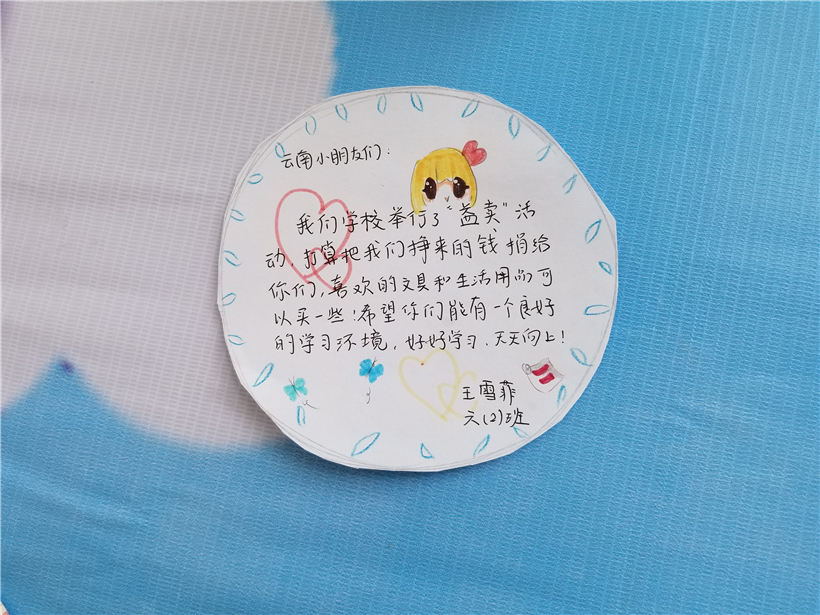 云南小朋友们:
我们学校举行了"益卖"活
动,打算把我们挣来的钱捐给
你们,喜欢的文具和生活用品可
以买一些!希望你们能有一个良好
的学习环境,好好学习、天天向上!
王雪菲
六(2)班